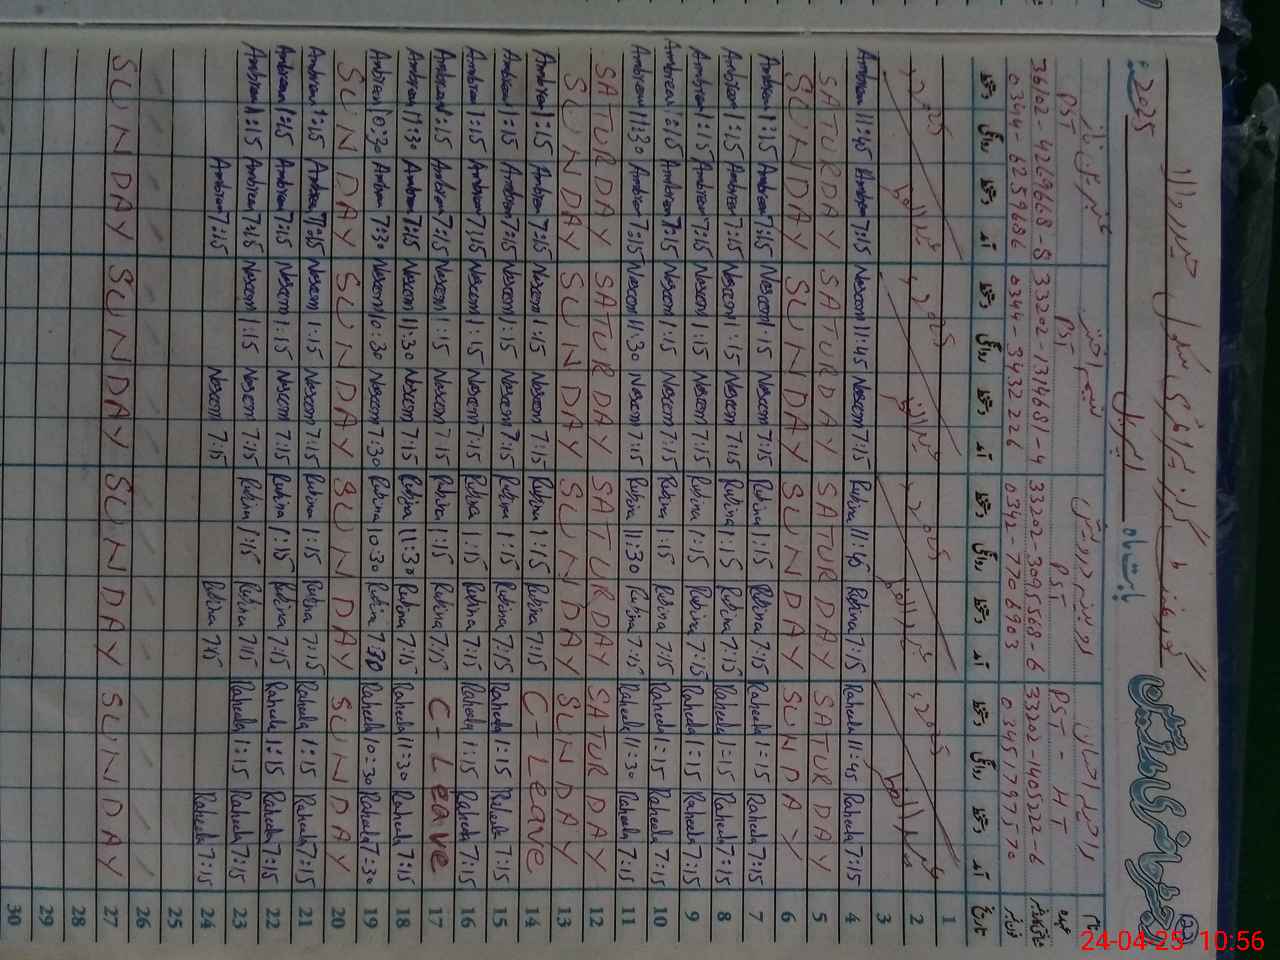 رجسٹر حاضری مدرسین
22
گورنمنٹ گرلز پرائمری سکول
بابت ماہ اپریل 2025ء
نسیم اختر روبینہ نام
PST PST PST PST - HT عہدہ
36102-4269668-8 33202-1314681-4 33202-3095568-6 33203-1405322-6
0344-6259686 0344-3432226 0342-7706903 03451797570
دستخط روانگی دستخط آمد دستخط روانگی دستخط آمد دستخط روانگی دستخط آمد دستخط روانگی دستخط آمد تاریخ
1
2025 2025 2025 2025 2
3
Ambreen 11:45 Ambreen 7:15 Naseem 11:45 Naseem 7:15 Rubina 11:45 Rubina 7:15 Raheela 11:45 Raheela 7:15 4
SATURDAY SATURDAY SATURDAY SATURDAY 5
SUNDAY SUNDAY SUNDAY SUNDAY 6
Ambreen 1:15 Ambreen 7:15 Naseem 1:15 Naseem 7:15 Rubina 1:15 Rubina 7:15 Raheela 1:15 Raheela 7:15 7
Ambreen 1:15 Ambreen 7:15 Naseem 1:15 Naseem 7:15 Rubina 1:15 Rubina 7:15 Raheela 1:15 Raheela 7:15 8
Ambreen 1:15 Ambreen 7:15 Naseem 1:15 Naseem 7:15 Rubina 1:15 Rubina 7:15 Raheela 1:15 Raheela 7:15 9
Ambreen 1:15 Ambreen 7:15 Naseem 1:15 Naseem 7:15 Rubina 1:15 Rubina 7:15 Raheela 1:15 Raheela 7:15 10
Ambreen 11:30 Ambreen 7:15 Naseem 11:30 Naseem 7:15 Rubina 11:30 Rubina 7:15 Raheela 11:30 Raheela 7:15 11
SATURDAY SATURDAY SATURDAY SATURDAY 12
SUNDAY SUNDAY SUNDAY SUNDAY 13
Ambreen 1:15 Ambreen 7:15 Naseem 1:15 Naseem 7:15 Rubina 1:15 Rubina 7:15 C-Leave 14
Ambreen 1:15 Ambreen 7:15 Naseem 1:15 Naseem 7:15 Rubina 1:15 Rubina 7:15 Raheela 1:15 Raheela 7:15 15
Ambreen 1:15 Ambreen 7:15 Naseem 1:15 Naseem 7:15 Rubina 1:15 Rubina 7:15 Raheela 1:15 Raheela 7:15 16
Ambreen 1:15 Ambreen 7:15 Naseem 1:15 Naseem 7:15 Rubina 1:15 Rubina 7:15 C-Leave 17
Ambreen 11:30 Ambreen 7:15 Naseem 11:30 Naseem 7:15 Rubina 11:30 Rubina 7:15 Raheela 11:30 Raheela 7:15 18
Ambreen 10:30 Ambreen 7:30 Naseem 10:30 Naseem 7:30 Rubina 10:30 Rubina 7:30 Raheela 10:30 Raheela 7:30 19
SUNDAY SUNDAY SUNDAY SUNDAY 20
Ambreen 1:15 Ambreen 7:15 Naseem 1:15 Naseem 7:15 Rubina 1:15 Rubina 7:15 Raheela 1:15 Raheela 7:15 21
Ambreen 1:15 Ambreen 7:15 Naseem 1:15 Naseem 7:15 Rubina 1:15 Rubina 7:15 Raheela 1:15 Raheela 7:15 22
Ambreen 1:15 Ambreen 7:15 Naseem 1:15 Naseem 7:15 Rubina 1:15 Rubina 7:15 Raheela 1:15 Raheela 7:15 23
Ambreen 7:15 Naseem 7:15 Rubina 7:15 Raheela 7:15 24
25
26
SUNDAY SUNDAY SUNDAY SUNDAY 27
28
29
30
24-04-25 10:56